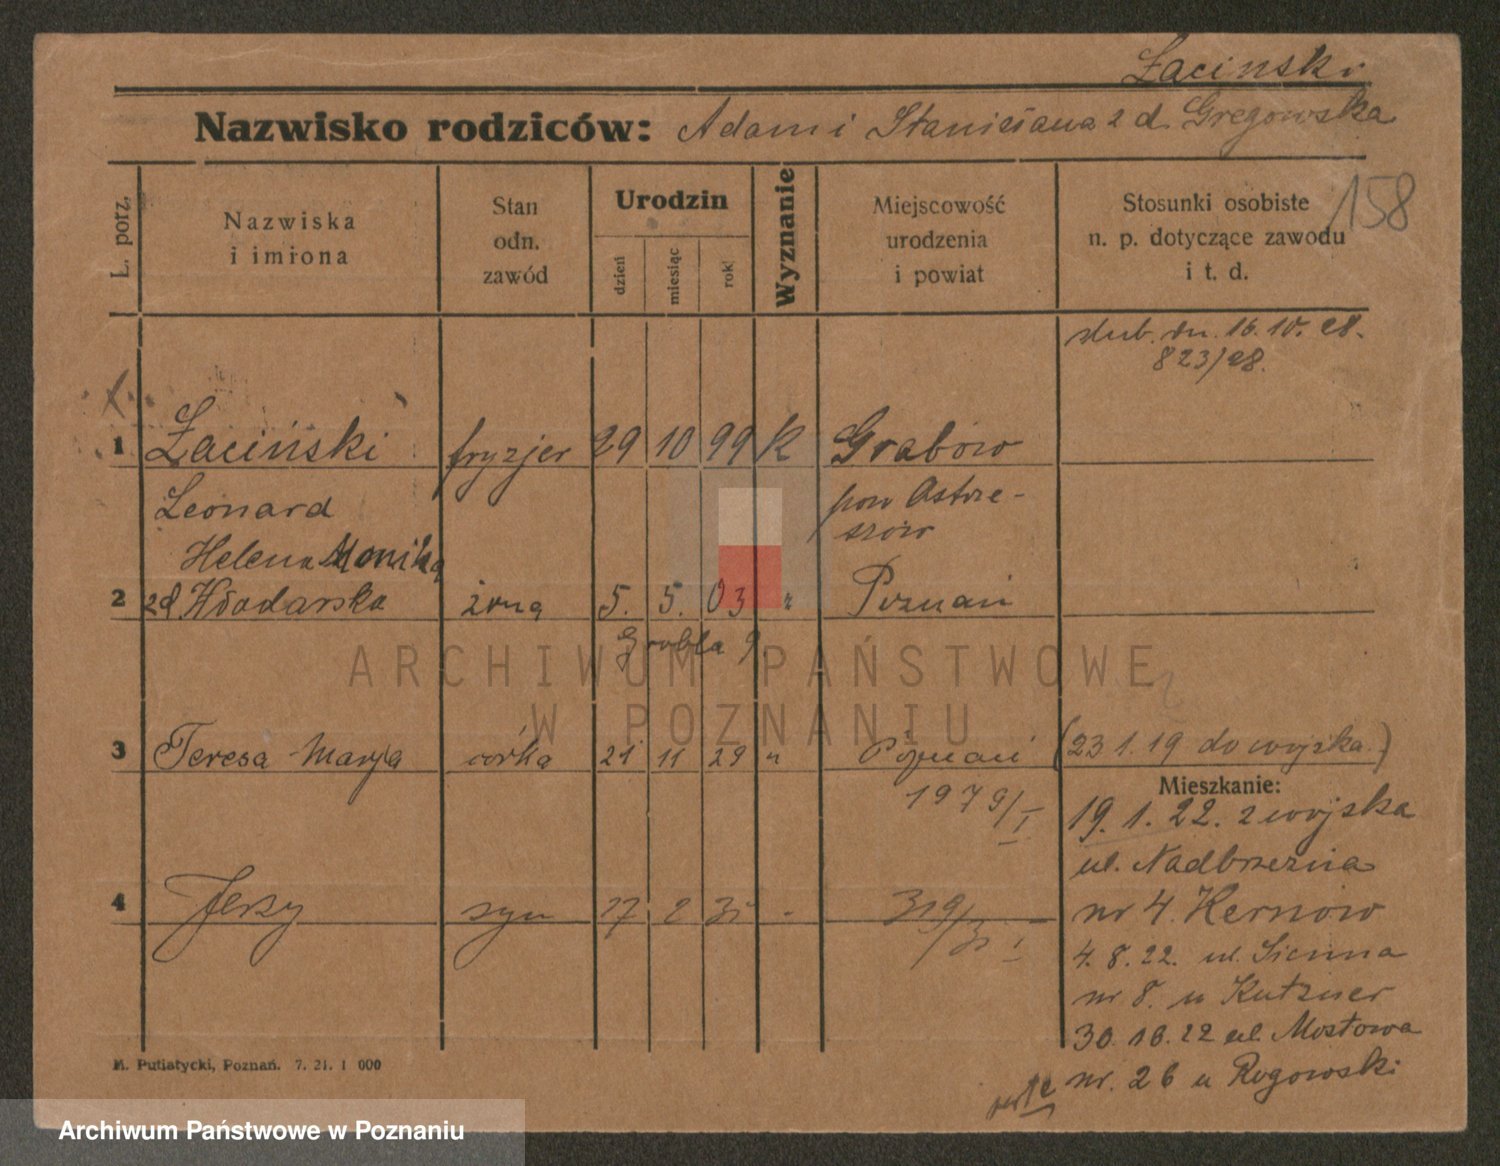 Łaciński
Nazwisko rodziców: Adam i Stanisława z d. Gregowska
158
L. porz.
Nazwiska
i imiona
Stan
odn.
zawód
Urodzin
dzień
miesiąc
rok
Wyznanie
Miejscowość
urodzenia
i powiat
Stosunki osobiste
n. p. dotyczące zawodu
i t. d.
ślub. dn. 16.10.28.
823/28.
1 Łaciński fryzjer 29 10 99 K Grabów
Leonard pow Ostrze-
szów
Helena Monika
2 zd Włodarska żona 5. 5. 03 " Poznań
Grobla 9.
3 Teresa Marja córka 21 11 29 " Poznań (23 1.19 do wojska.)
1979/I
Mieszkanie:
19. 1. 22. z wojska
ul. Nadbrzeżna
4 Jerzy syn 17 2 31 " 319/31 I
nr 4. Kernów
4. 8. 22. ul. Sienna
nr 8. u Kutzner
30. 10. 22 ul. Mostowa
nr. 26 u Rogowski
M. Putiatycki, Poznań. 7. 21. 1 000
ARCHIWUM PAŃSTWOWE
W POZNANIU
Archiwum Państwowe w Poznaniu